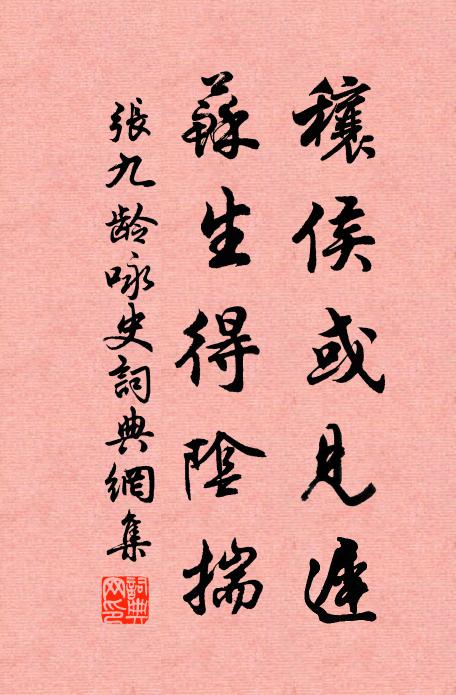 穰侯或見遲
蘇生得陰揣
張九龄咏史詞典網集
詞典網印